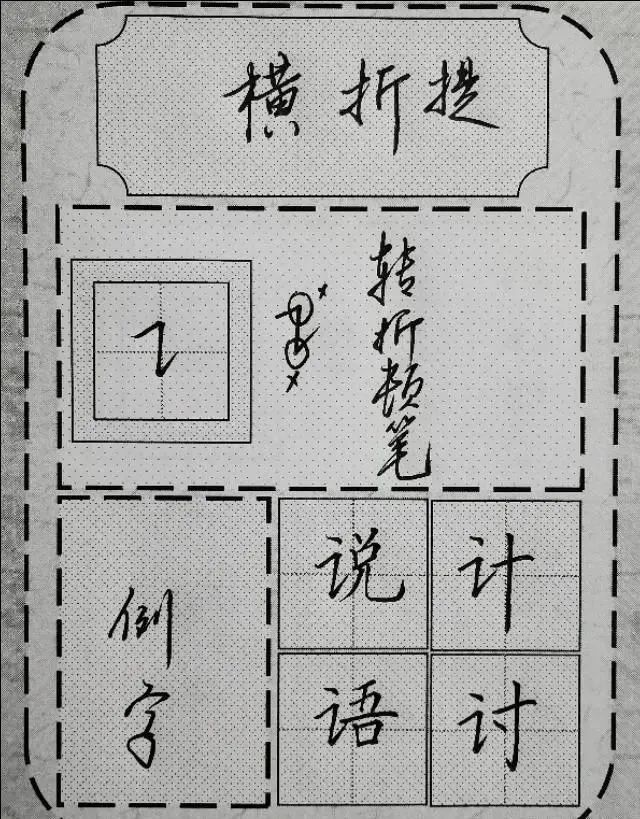 横折提
转折顿笔
例字
说计
语讨